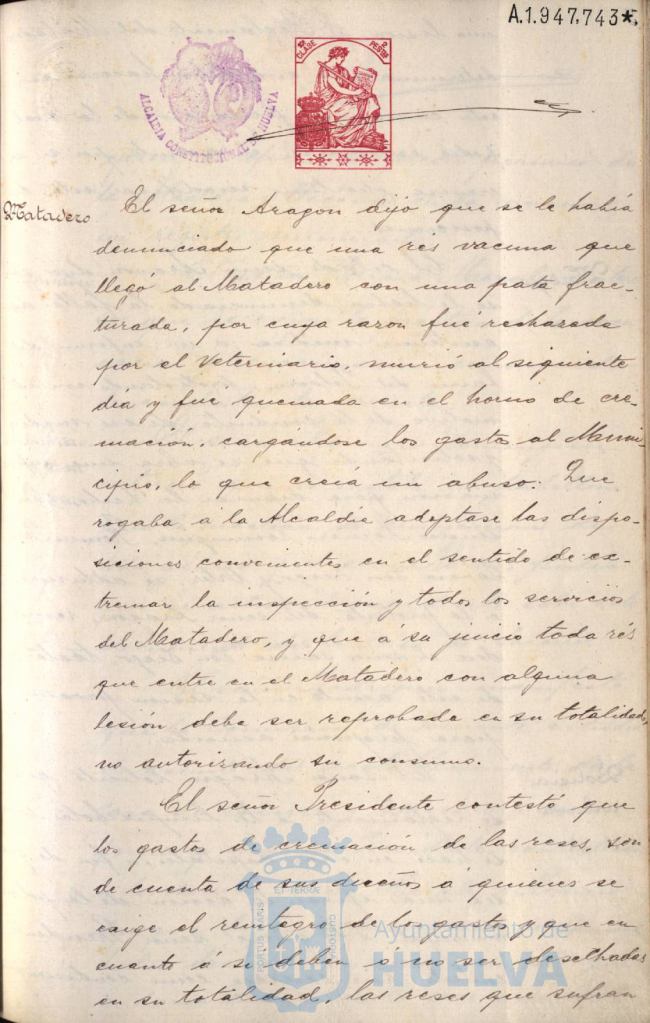 A.1.947,743*,
1ª CLASE 2 PESTAS
ALCALDIA CONSTITUCIONAL DE HUELVA
Matadero
El señor Aragon dijo que se le había
denunciado que una res vacuna que
llegó al Matadero con una pata frac-
turada, por cuya razon fué rechazada
por el Veterinario, murió al siguiente
dia y fué quemada en el horno de cre-
mación, cargandose los gastos al Muni-
cipio, lo que creiá un abuso. Que
rogaba á la Alcaldia adoptase las dispo-
siciones convenientes en el sentido de ex-
tremar la inspección y todos los servicios
del Matadero, y que á su juicio toda rés
que entre en el Matadero con alguna
lesión debe ser reprobada en su totalidad,
no autorizando su consumo.
El señor Presidente contestó que
los gastos de cremación de las reses, son
de cuenta de sus dueños á quienes se
exige el reintegro de los gastos y que en
cuanto á si deben ó no ser desechadas
en su totalidad, las reses que sufran
PORTUS MARIS ET TERRÆ CUSTODIA
Ayuntamiento de
HUELVA